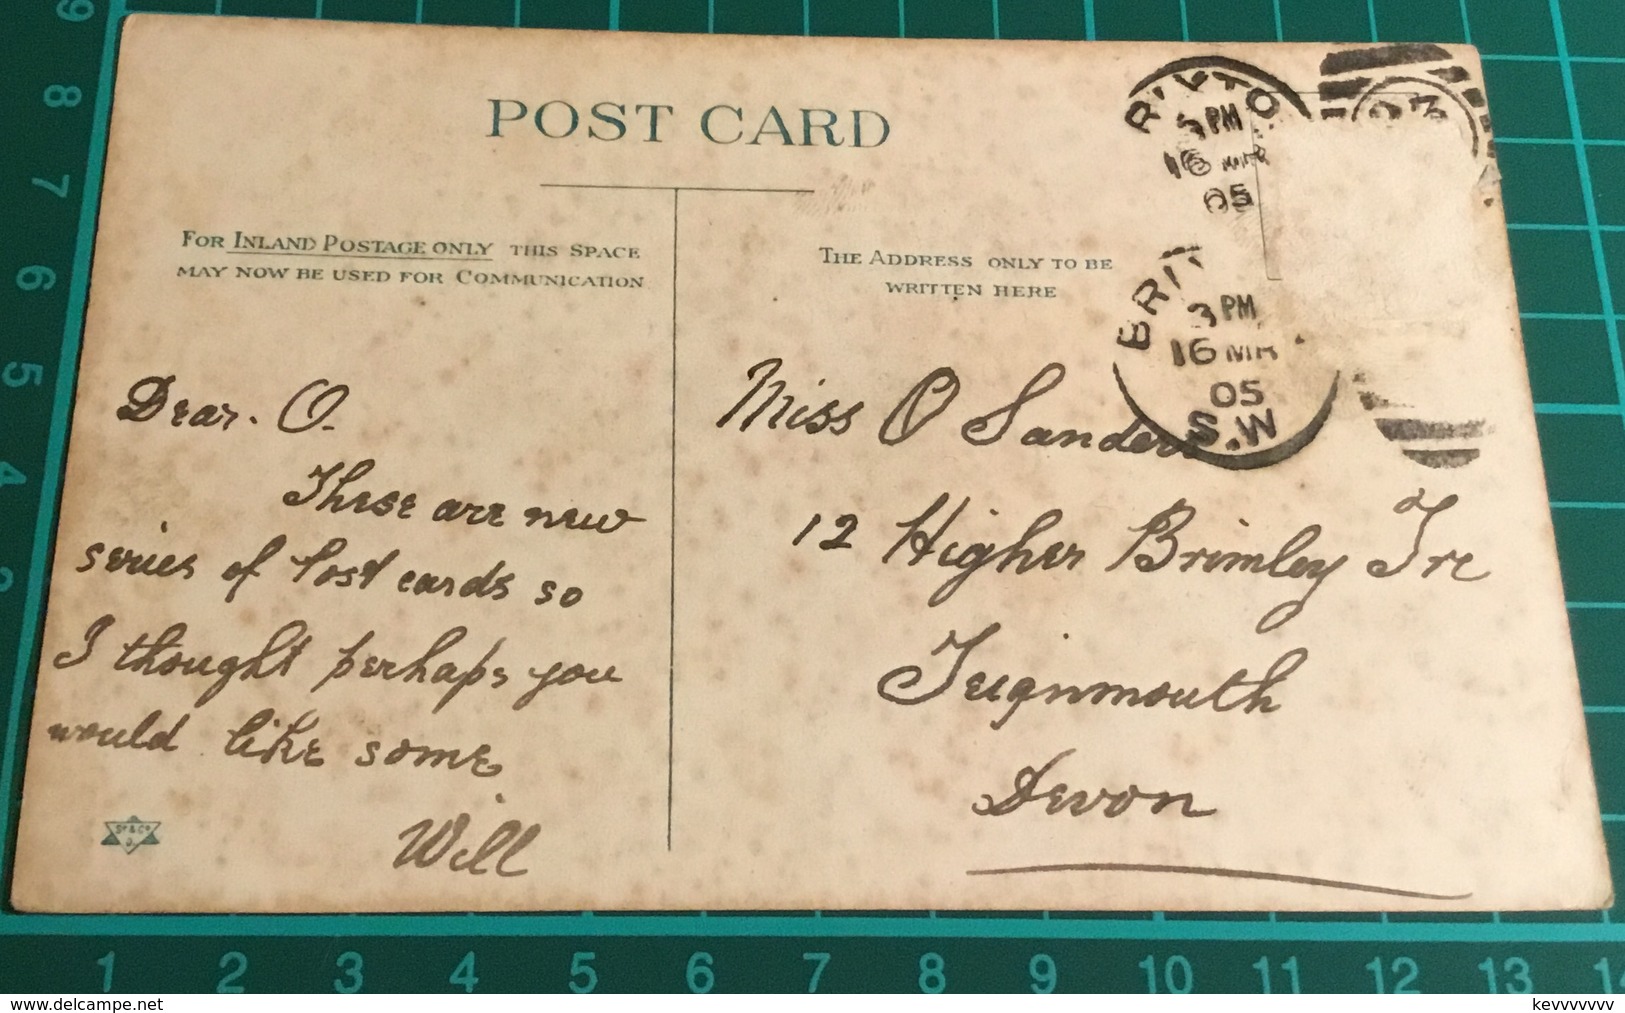 POST CARD
FOR INLAND POSTAGE ONLY THIS SPACE
MAY NOW BE USED FOR COMMUNICATION
THE ADDRESS ONLY TO BE
WRITTEN HERE
3 PM
16 MAR
05
BRI
3 PM
16 MR
05
S.W
Dear. O.
These are new
series of Post cards so
I thought perhaps you
would like some
Will
Miss O Sanders
12 Higher Brimley Tre
Teignmouth
Devon
St & Co
D.
9
8
7
6
5
4
1 2 3 4 5 6 7 8 9 10 11 12 13 14
delcampe.net
kevvvvvvv